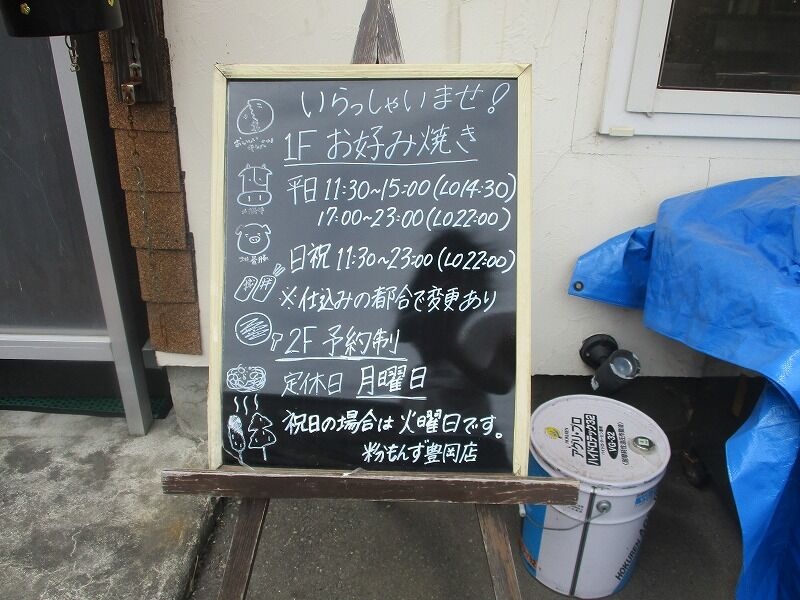 いらっしゃいませ!
1F お好み焼き
平日 11:30~15:00(LO14:30)
17:00~23:00(LO22:00)
日祝 11:30~23:00(LO22:00)
※仕込みの都合で変更あり
2F 予約制
定休日 月曜日
祝日の場合は火曜日です。
粉もんず豊岡店
アクリ・プロ
ハイドロテック32
VG-32
HOKUREN